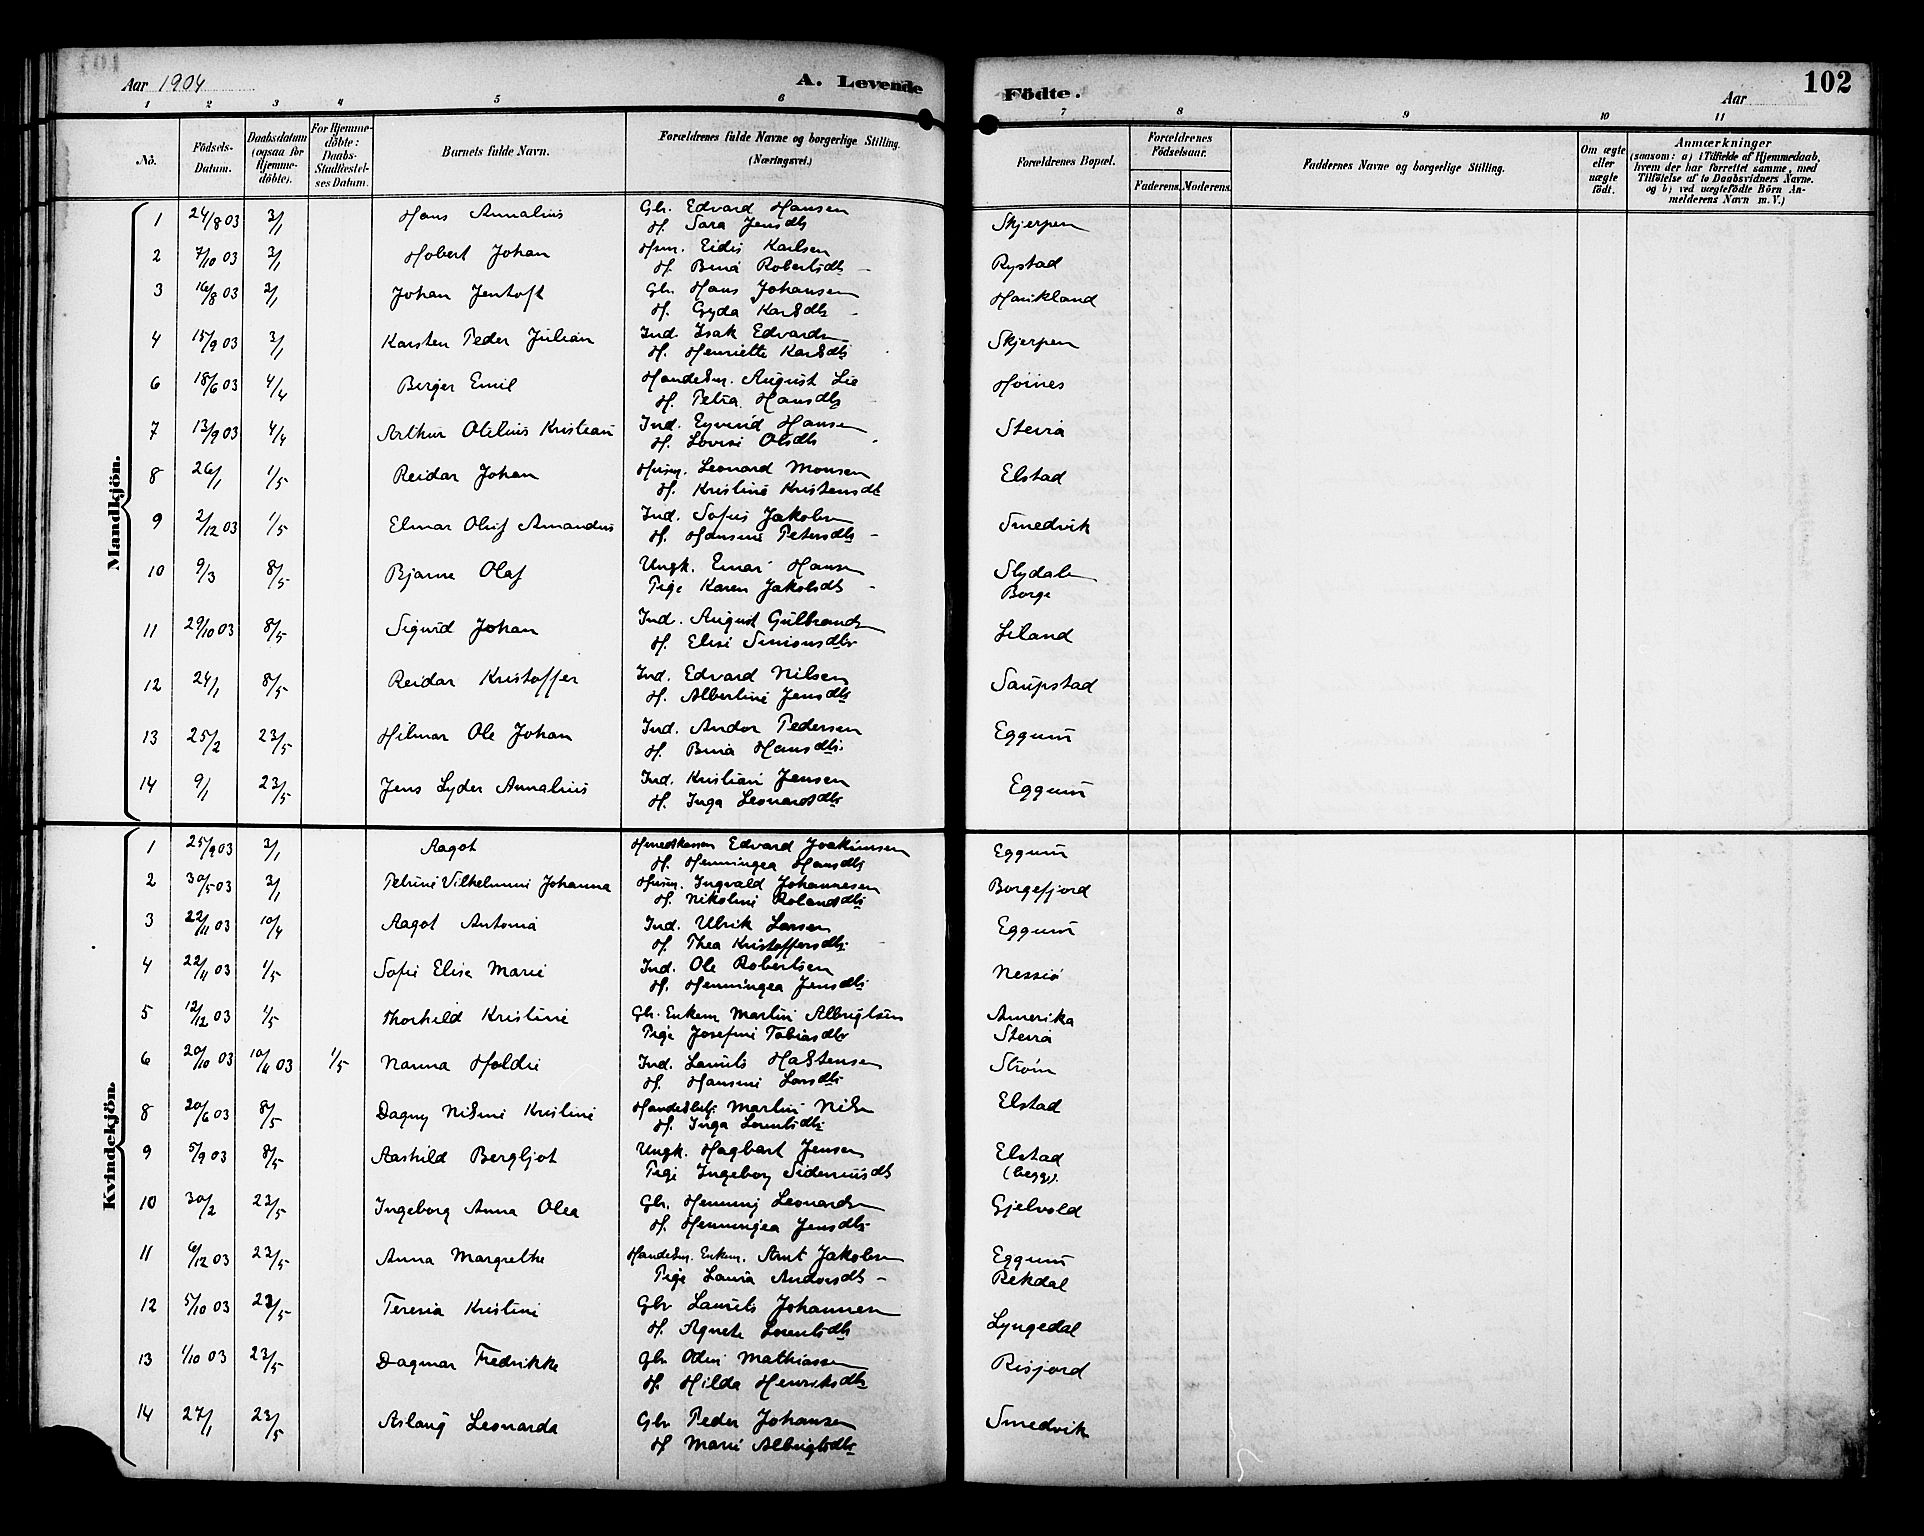 Aar 1904
A. Levende
Födte.
Aar
102
1 2 3 4 5 6 7 8 9 10 11
No.
Födsels-Datum.
Daabsdatum (ogsaa for Hjemme-döbte).
For Hjemme-döbte: Daabs-Stadfæstel-ses Datum.
Barnets fulde Navn.
Forældrenes fulde Navne og borgerlige Stilling. (Næringsvei.)
Forældrenes Bopæl.
Forældrenes Födselsaar.
Faderens. Moderens.
Faddernes Navne og borgerlige Stilling.
Om ægte eller uægte födt.
Anmærkninger
(saasom: a) i Tilfælde af Hjemmedaab, hvem der har forrettet samme, med Tilföielse af to Daabsvidners Navne. og b) ved uægtefödte Börn An-melderens Navn m. V.)
Mandkjön.
1 24/8 03 3/1 Hans Annalius Gbr. Edvard Hansen Skjerpen
H. Sara Jensdtr
2 7/10 03 3/1 Hobert Johan Hsm. Eidis Karlsen Rystad
H. Bina Robertsdtr
3 16/8 03 3/1 Johan Jentoft Gbr Hans Johansen Haukland
H. Gyda Karlsdtr
4 15/9 03 3/1 Karsten Peder Julian Ind. Isak Edvardsen Skjerpen
H. Henriette Karlsdtr
6 18/6 03 4/4 Birger Emil Handelsm. August Lie Höines
H. Petra Hansdtr
7 13/9 03 4/4 Arthur Otelius Kristean Ind. Eyvind Hansen Steira
H. Lovise Olsdtr
8 26/1 1/5 Reidar Johan Husm. Leonard Monsen Elstad
H. Kristine Kristensdtr
9 2/12 03 1/5 Elmar Oluf Amandus Ind. Sofus Jakobsen Smedvik
H. Hansine Petersdtr
10 9/3 8/5 Bjarne Olaf Ungk. Einar Hansen Slydalen
Pige Karen Jakobsdtr Borge
11 29/10 03 8/5 Sigurd Johan Ind. August Gulbrandsen Liland
H. Elise Simonsdtr
12 24/1 8/5 Reidar Kristoffer Ind. Edvard Nilsen Saupstad
H. Albertine Jensdtr
13 25/2 23/5 Hilmar Ole Johan Ind. Andor Pedersen Eggum
H. Bina Hansdtr
14 9/1 23/5 Jens Lyder Annalius Ind. Kristian Jensen Eggum
H. Inga Leonardsdtr
Kvindekjön.
1 25/9 03 3/1 Aagot Edvard Joakimsen Eggum
H. Henningea Hansdtr
2 30/5 03 3/1 Petrine Vilhelmine Johanna Husm. Ingvald Johannesen Borgefjord
H. Nikoline Rolandsdtr
3 22/11 03 10/4 Aagot Antonia Ind. Ulrik Larsen Eggum
H. Thea Kristoffersdtr
4 22/11 03 1/5 Sofie Elise Marie Ind. Ole Robertsen Nessiö
H. Henningea Jensdtr
5 12/12 03 1/5 Thorhild Kristine Gbr. Enkem Martin Albrigtsen Amerika
Pige Josefine Tobiasdtr Steira
6 20/10 03 10/11 03 1/5 Nanna Holdie Ind. Laurits Halstensen Ström
H. Hansine Larsdtr
8 20/6 03 8/5 Dagny Nilsine Kristine Handelsbetj. Martin Nilsen Elstad
H. Inga Lorentsdtr
9 5/9 03 8/5 Aashild Bergljot Ungk. Hagbart Jensen Elstad
Pige Ingeborg Sideniusdtr (begge).
10 30/2 23/5 Ingeborg Anna Olea Gbr. Henning Leonardsen Gjelvold
H. Henningea Jensdtr
11 6/12 03 23/5 Anna Margrethe Handelsm. Enkem. Arnt Jakobsen Eggum
Pige Laura Andorsdtr Rekdal
12 5/10 03 23/5 Teresia Kristine Gbr Laurits Johannesen Lyngedal
H. Agnete Lorentsdtr
13 1/10 03 23/5 Dagmar Fredrikke Gbr Odin Mathiassen Risjord
H. Hilda Henriksdtr
14 27/1 23/5 Aslaug Leonarda Gbr Peder Johansen Smedvik
H Marie Albrigtsdtr